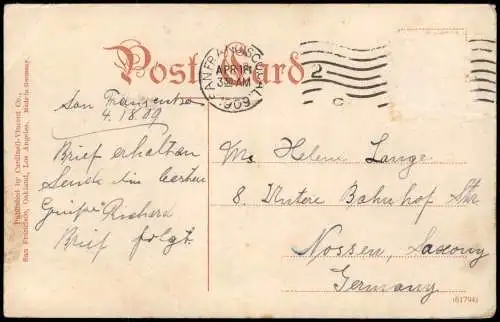 Post Card
SAN FRANCISCO, CAL.
APR 18
3 30 AM
1909
2
C
San Franzisko
4.18.09
Brief erhalten
Sende die besten
Grüße Richard
Brief folgt.
Ms Helene Lange
8. Untere Bahnhof Str
Nossen, Saxony
Germany
Published by Cardinell-Vincent Co.,
San Francisco, Oakland, Los Angeles. Made in Germany.
(61794)